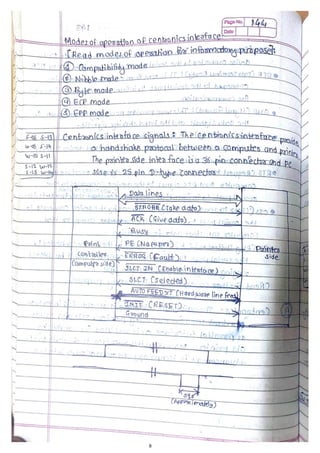 Page No. 144
Date
Modes of operation of centronics inteface
[Read modes of operation for information purpose]
① Compatibility mode
② Nibble mode
③ Byte mode
④ ECP mode
⑤ EPP mode
Centronics inteface signals : The centronics inteface provide
a handshake protocol between a computer and printer
The printer side interface is a 36 pin connector and PC
side is 25 pin D-type connector
Data lines
STROBE (Take data)
ACK (Give data)
Busy
Print PE (No paper) Printer
controller ERROR (Fault) side
(computer side) SLCT IN (Enable interface)
SLCT (selected)
AUTO FEED XT (Hardware line feed)
INIT (RESET)
Ground
(Approximately)